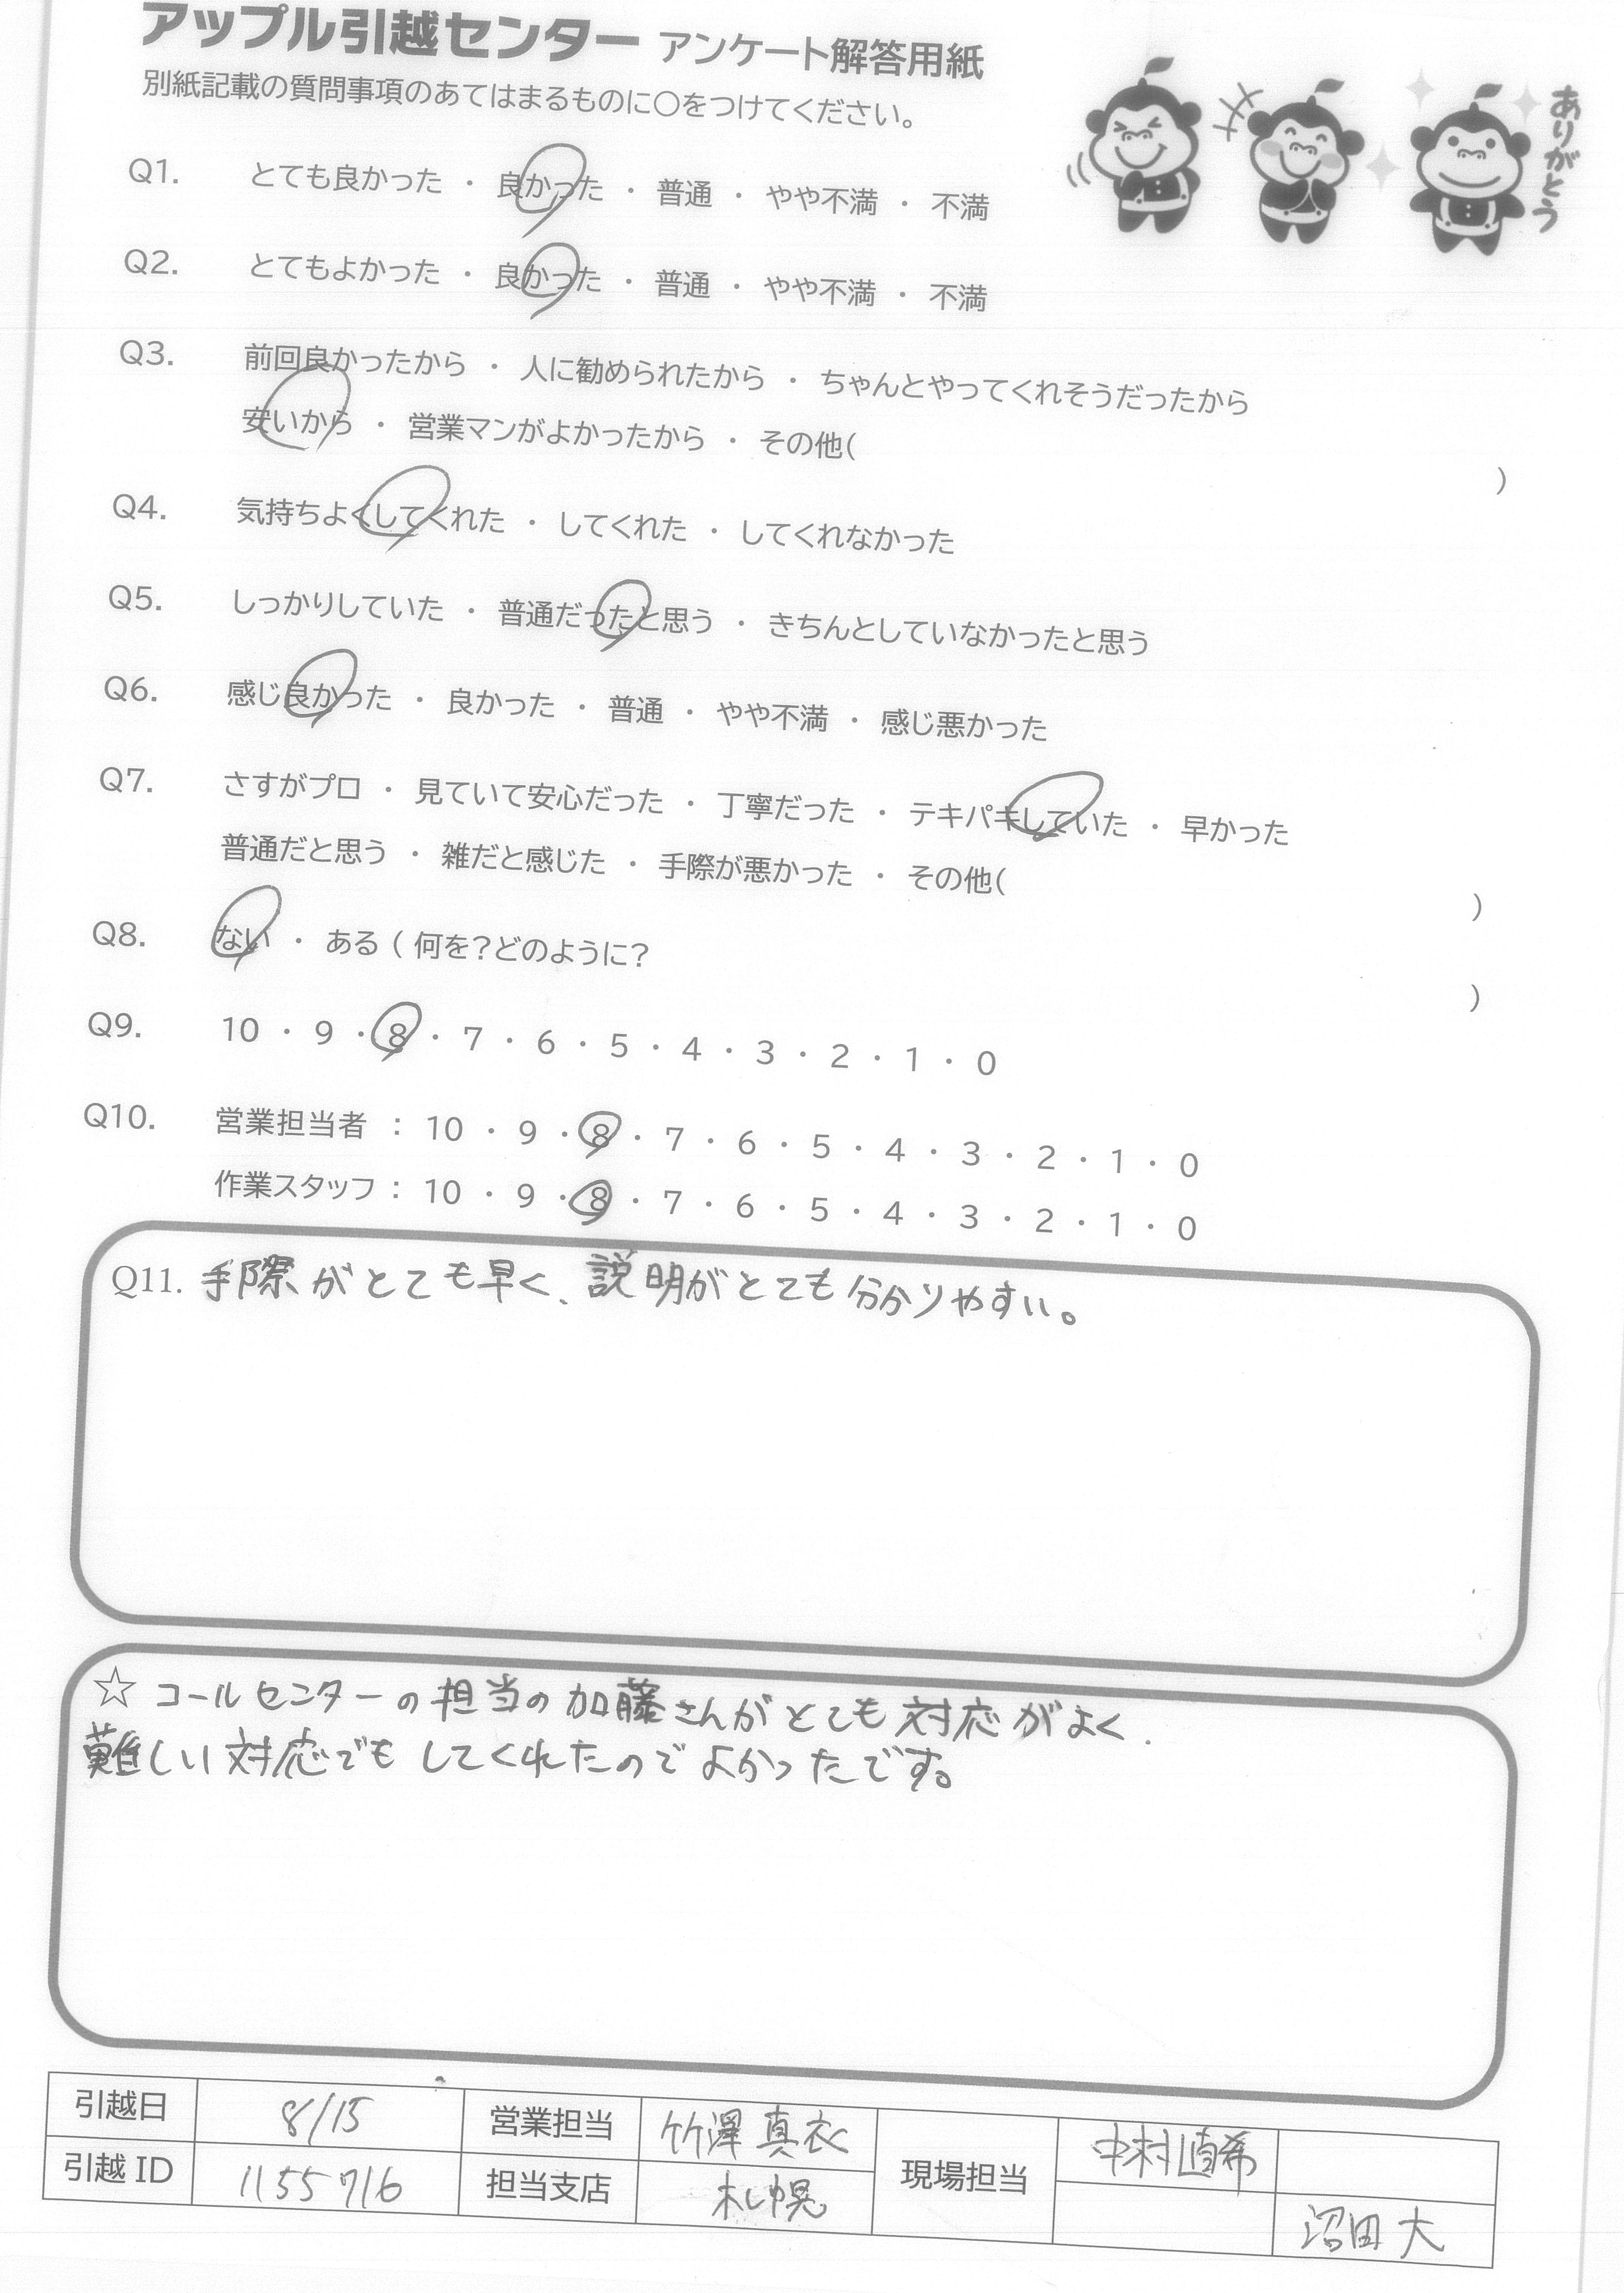 アップル引越センター アンケート解答用紙
別紙記載の質問事項のあてはまるものに○をつけてください。
ありがとう
Q1. とても良かった ・ 良かった ・ 普通 ・ やや不満 ・ 不満
Q2. とてもよかった ・ 良かった ・ 普通 ・ やや不満 ・ 不満
Q3. 前回良かったから ・ 人に勧められたから ・ ちゃんとやってくれそうだったから
安いから ・ 営業マンがよかったから ・ その他( )
Q4. 気持ちよくしてくれた ・ してくれた ・ してくれなかった
Q5. しっかりしていた ・ 普通だったと思う ・ きちんとしていなかったと思う
Q6. 感じ良かった ・ 良かった ・ 普通 ・ やや不満 ・ 感じ悪かった
Q7. さすがプロ ・ 見ていて安心だった ・ 丁寧だった ・ テキパキしていた ・ 早かった
普通だと思う ・ 雑だと感じた ・ 手際が悪かった ・ その他( )
Q8. ない ・ ある ( 何を?どのように? )
Q9. 10 ・ 9 ・ 8 ・ 7 ・ 6 ・ 5 ・ 4 ・ 3 ・ 2 ・ 1 ・ 0
Q10. 営業担当者 : 10 ・ 9 ・ 8 ・ 7 ・ 6 ・ 5 ・ 4 ・ 3 ・ 2 ・ 1 ・ 0
作業スタッフ : 10 ・ 9 ・ 8 ・ 7 ・ 6 ・ 5 ・ 4 ・ 3 ・ 2 ・ 1 ・ 0
Q11. 手際がとても早く、説明がとても分かりやすい。
☆ コールセンターの担当の加藤さんがとても対応がよく、
難しい対応でもしてくれたのでよかったです。
引越日 8/15 営業担当 竹澤真衣 現場担当 中村直希
引越ID 1155716 担当支店 札幌 沼田大